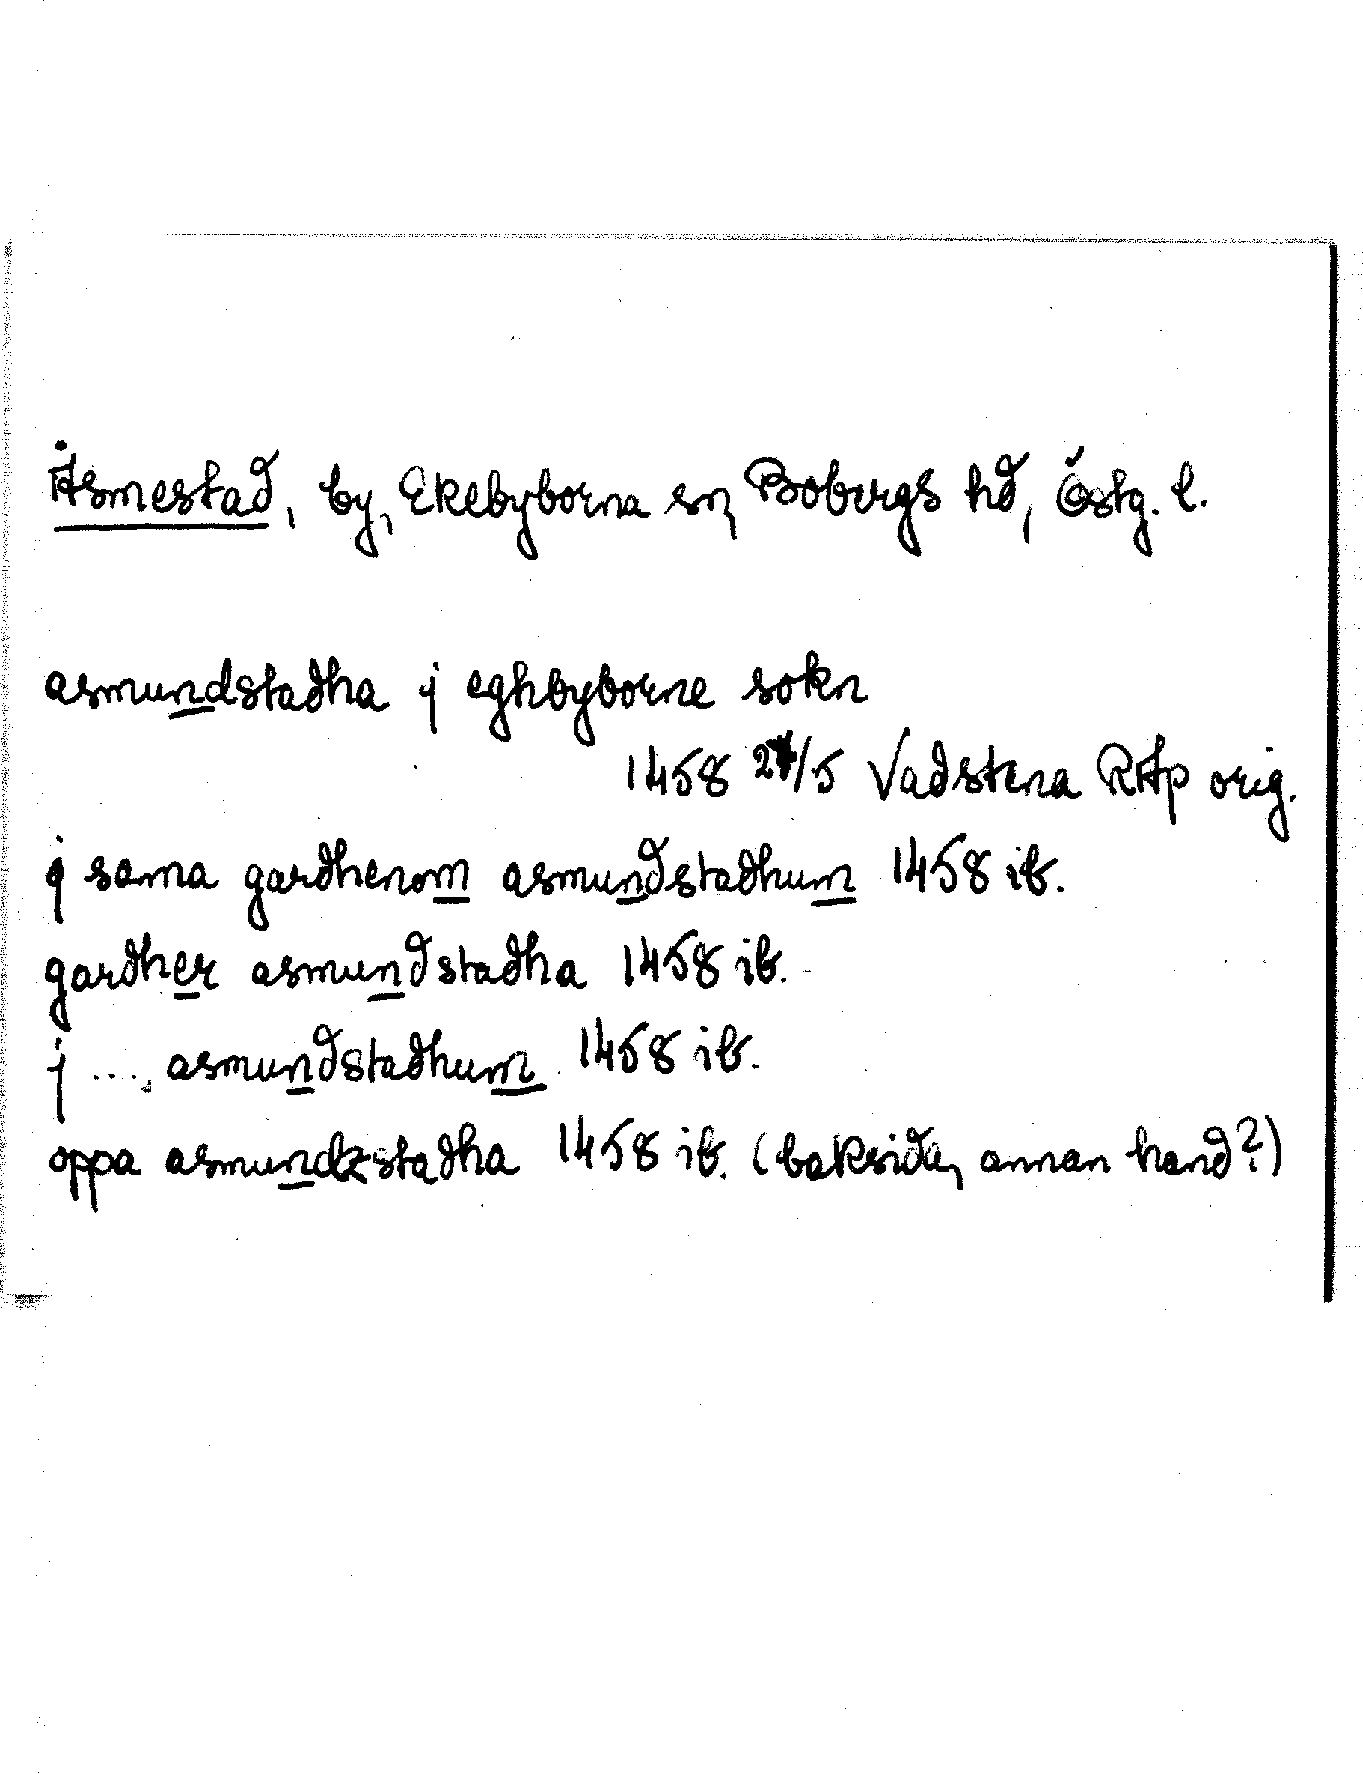 Åsmestad, by, Ekebyborna sn, Bobergs hd, Östg. l.
asmundstadha j eghbyborne sokn
1458 24/5 Vadstena RAp orig.
j sama gardhenom asmundstadhum 1458 ib.
gardher asmundstadha 1458 ib.
j .... asmundstadhum 1458 ib.
oppa asmundzstadha 1458 ib. (baksida, annan hand?)